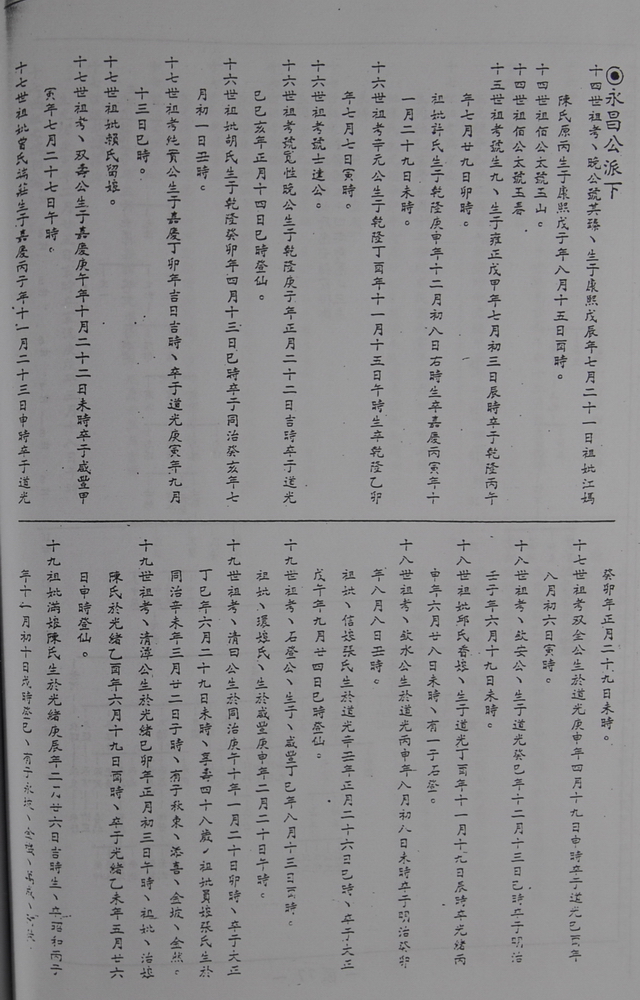 ◉永昌公派下
十四世祖考、晚公號英臻、生于康熙戊辰年七月二十一日祖妣江媽
陳氏原丙生于康熙戊子年八月十五日酉時。
十四世祖佰公太號玉山。
十四世祖佰公太號玉春
十三世祖考號生九、生于雍正戊甲年七月初三日辰時卒于乾隆丙午
年七月廿九日卯時。
祖妣許氏生于乾隆庚申年十二月初八日右時生卒嘉慶丙寅年十
一月二十九日未時。
十六世祖考辛元公生于乾隆丁酉年十一月十五日午時生卒乾隆乙卯
年七月七日寅時。
十六世祖考號士達公。
十六世祖考號寬性晚公生于乾隆庚子年正月二十二日吉時卒于道光
己巳亥年正月十四日巳時登仙。
十六世祖妣胡氏生于乾隆癸卯年四月十三日巳時卒于同治癸亥年七
月初一日丑時。
十七世祖考純貴公生于嘉慶丁卯年吉日吉時、卒于道光庚寅年九月
十三日巳時。
十七世祖妣賴氏留娘。
十七世祖考、双壽公生于嘉慶庚午年十月二十二日未時卒于咸豐甲
寅年七月二十七日午時。
十七世祖妣曾氏端莊生于嘉慶丙子年十一月二十三日申時卒于道光
癸卯年正月二十九日未時。
十七世祖考双金公生於道光庚申年四月十九日申時卒于道光己酉年
八月初六日寅時。
十八世祖考、欽安公、生于道光癸巳年十二月十三日巳時卒于明治
壬子年六月十九日未時。
十八世祖妣邱氏香娘、生于道光丁酉年十一月十九日辰時卒光緒丙
申年六月廿八日未時、有一子石登。
十八世祖考、欽水公生於道光丙申年八月初八日未時卒于明治癸卯
年八月八日丑時。
祖妣、信娘張氏生於道光辛丑年正月二十六日巳時、卒于大正
戊午年九月廿四日巳時登仙。
十九世祖考、石登公、生于、咸豐丁巳年八月十三日酉時。
祖妣、環娘氏、生於咸豐庚申年二月二十日午時。
十九世祖考、清曰公生於同治庚午十年一月二十日卯時、卒于大正
丁巳年六月二十九日未時、享壽四十八歲、祖妣員娘張氏生於
同治辛未年三月廿二日子時、有于秋東、添喜、金坡、金然。
十九世祖考、清淳公生於光緒己卯年正月初三日午時、祖妣、治娘
陳氏於光緒乙酉年六月十九日酉時、卒于光緒乙未年五月廿六
日申時登仙。
十九祖妣滿娘陳氏生於光緒庚辰年二月廿六日吉時生、卒昭和丙子
年十一月初十日戌時登巳、有子永坡、金